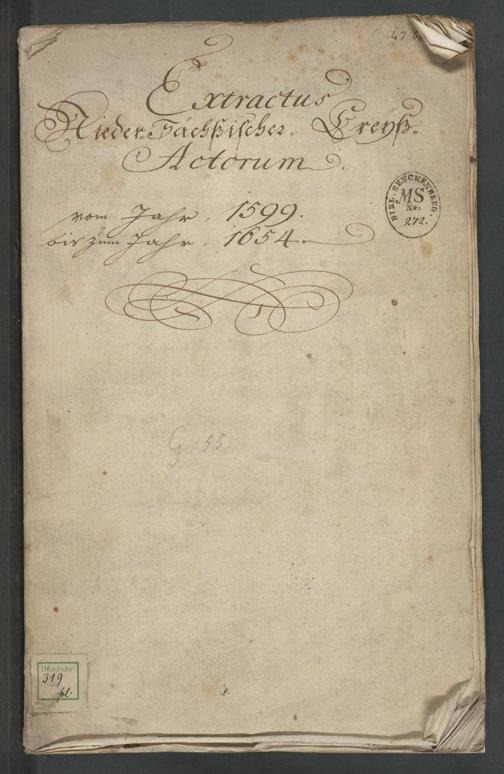 Extractus
Nieder-Sächßischer Creyß-
Actorum.
vom Jahr. 1599.
bis zum Jahr. 1654.
BIBL. SENCKENBERG
MS
No:
272.
G 55
Handschr.
319
fol.